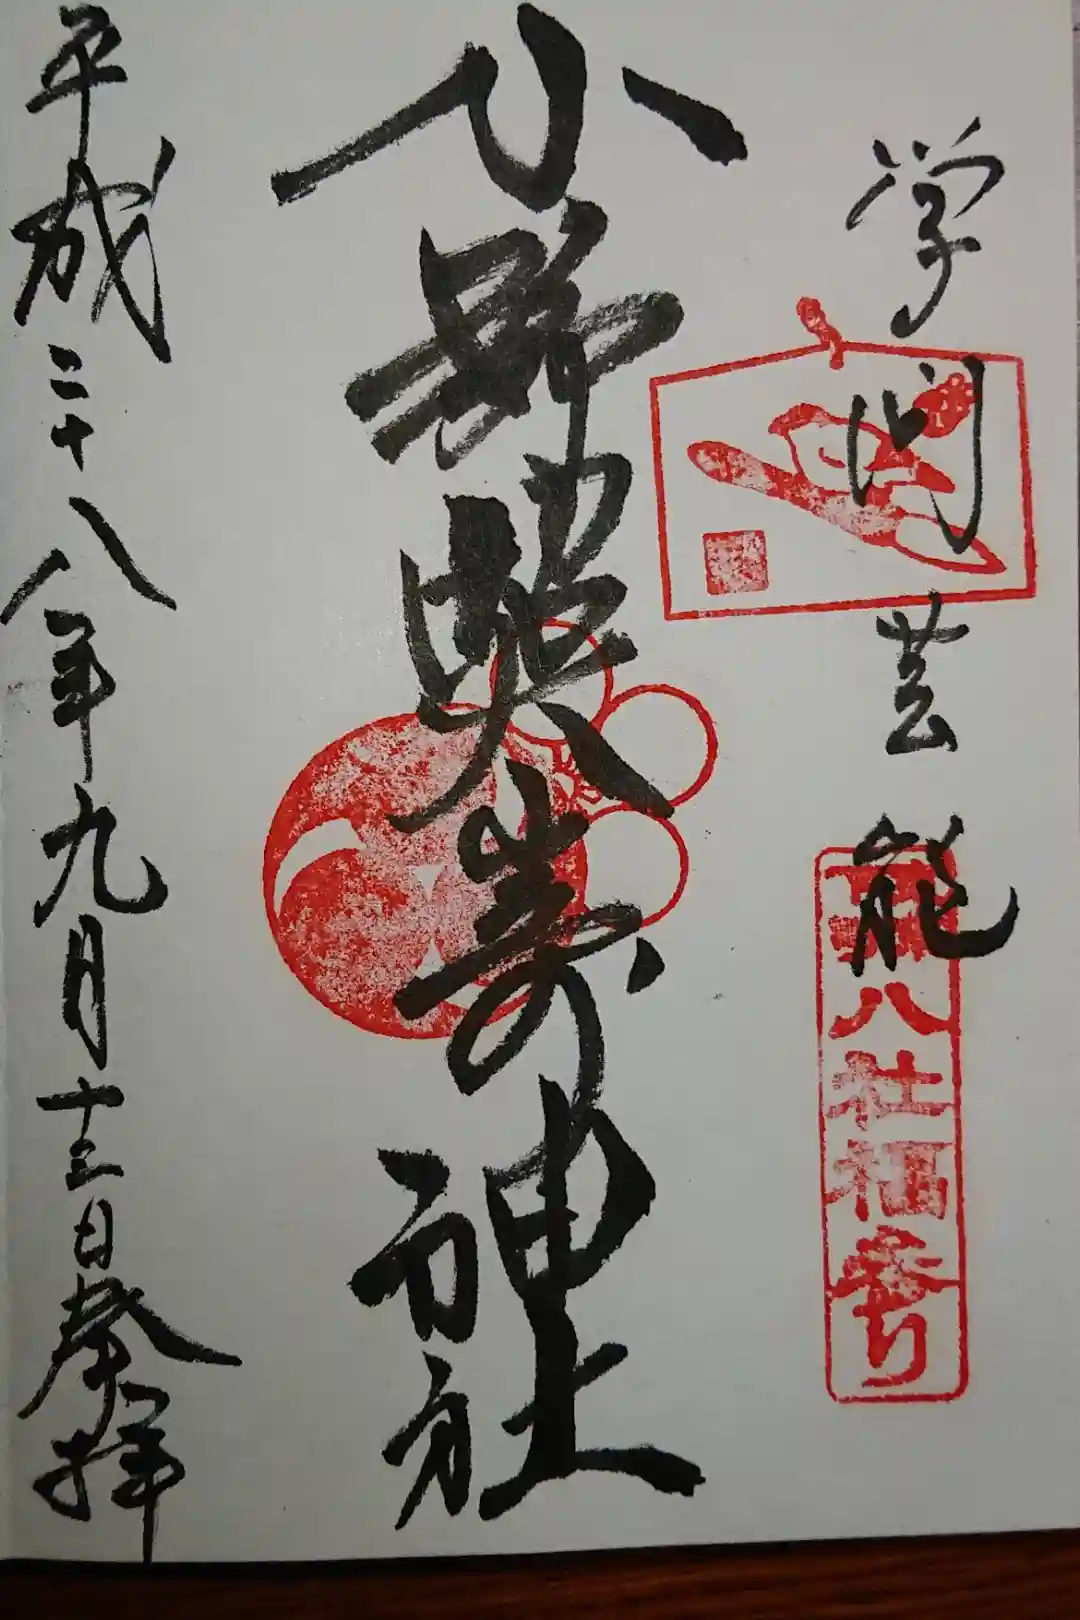 学問芸能
下谷八社福参り
小野照崎神社
平成二十八年九月十三日奉拝